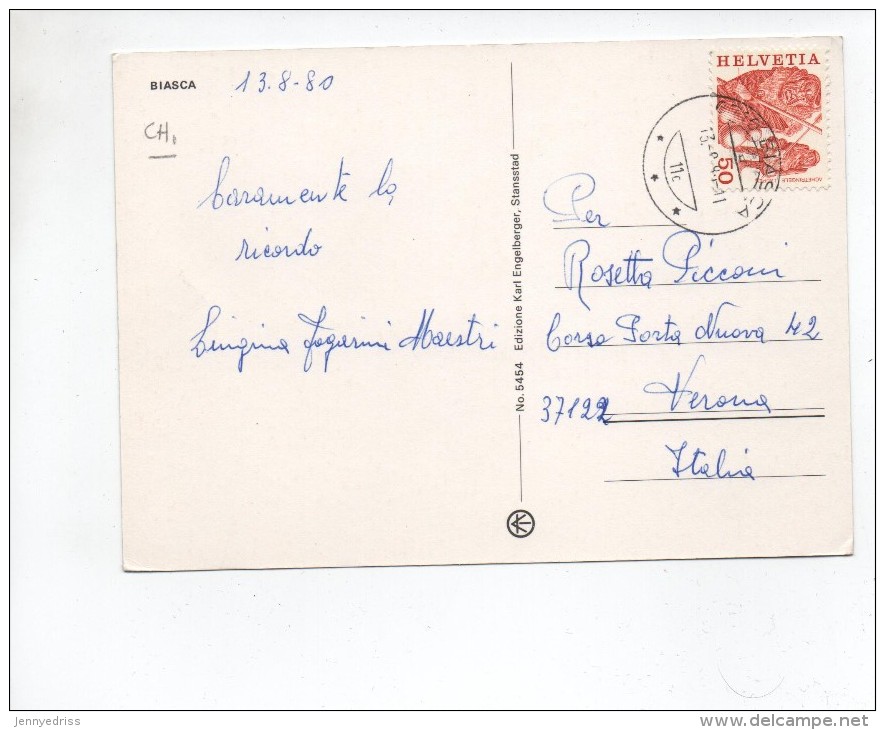 BIASCA 13.8-80
CH.
Caramente la
ricordo
Luigina Fogarini Maestri
No. 5454 Edizione Karl Engelberger, Stansstad
HELVETIA
50
ACHETRINGELE
BIASCA
11c
Per
Rosetta Picconi
Corso Porta Nuova 42
37122 Verona
Italia
jennyedriss
delcampe.net